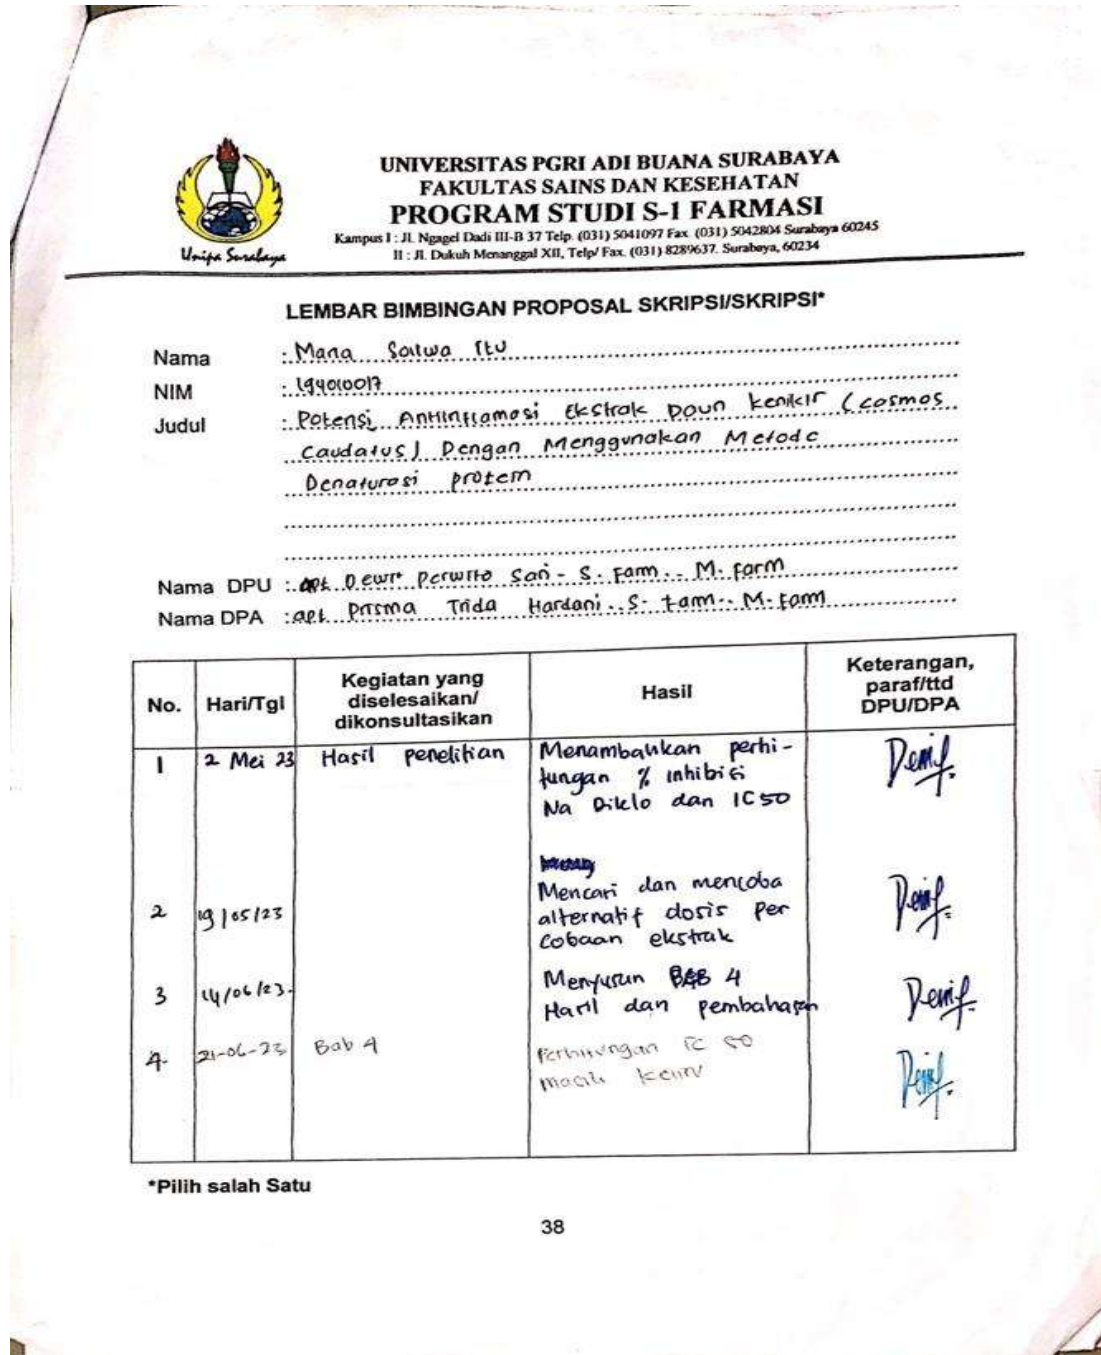 Unipa Surabaya
UNIVERSITAS PGRI ADI BUANA SURABAYA
FAKULTAS SAINS DAN KESEHATAN
PROGRAM STUDI S-1 FARMASI
Kampus I : Jl. Ngagel Dadi III-B 37 Telp. (031) 5041097 Fax. (031) 5042804 Surabaya 60245
II : Jl. Dukuh Menanggal XII, Telp/ Fax. (031) 8289637. Surabaya, 60234
LEMBAR BIMBINGAN PROPOSAL SKRIPSI/SKRIPSI*
Nama : Maria Salwa
NIM : 194010017
Judul : Potensi Antiinflamasi Ekstrak Daun kenikir (cosmos
Caudatus) Dengan Menggunakan Metode
Denaturasi protein
Nama DPU : apt. Dewi Perwito Sari - S. Farm.. M. Farm
Nama DPA : apt. Prisma Trida Hardani.. S. Farm.. M. Farm
No. Hari/Tgl Kegiatan yang diselesaikan/ dikonsultasikan Hasil Keterangan, paraf/ttd DPU/DPA
1 2 Mei 23 Hasil penelitian Menambahkan perhi-
tungan % inhibisi
Na Diklo dan IC50
Mencari dan mencoba
2 19/05/23 alternatif dosis per
cobaan ekstrak
Menyusun BAB 4
3 14/06/23. Hasil dan pembahasan
4. 21-06-23 Bab 4 Perhitungan IC 50
masih
*Pilih salah Satu
38